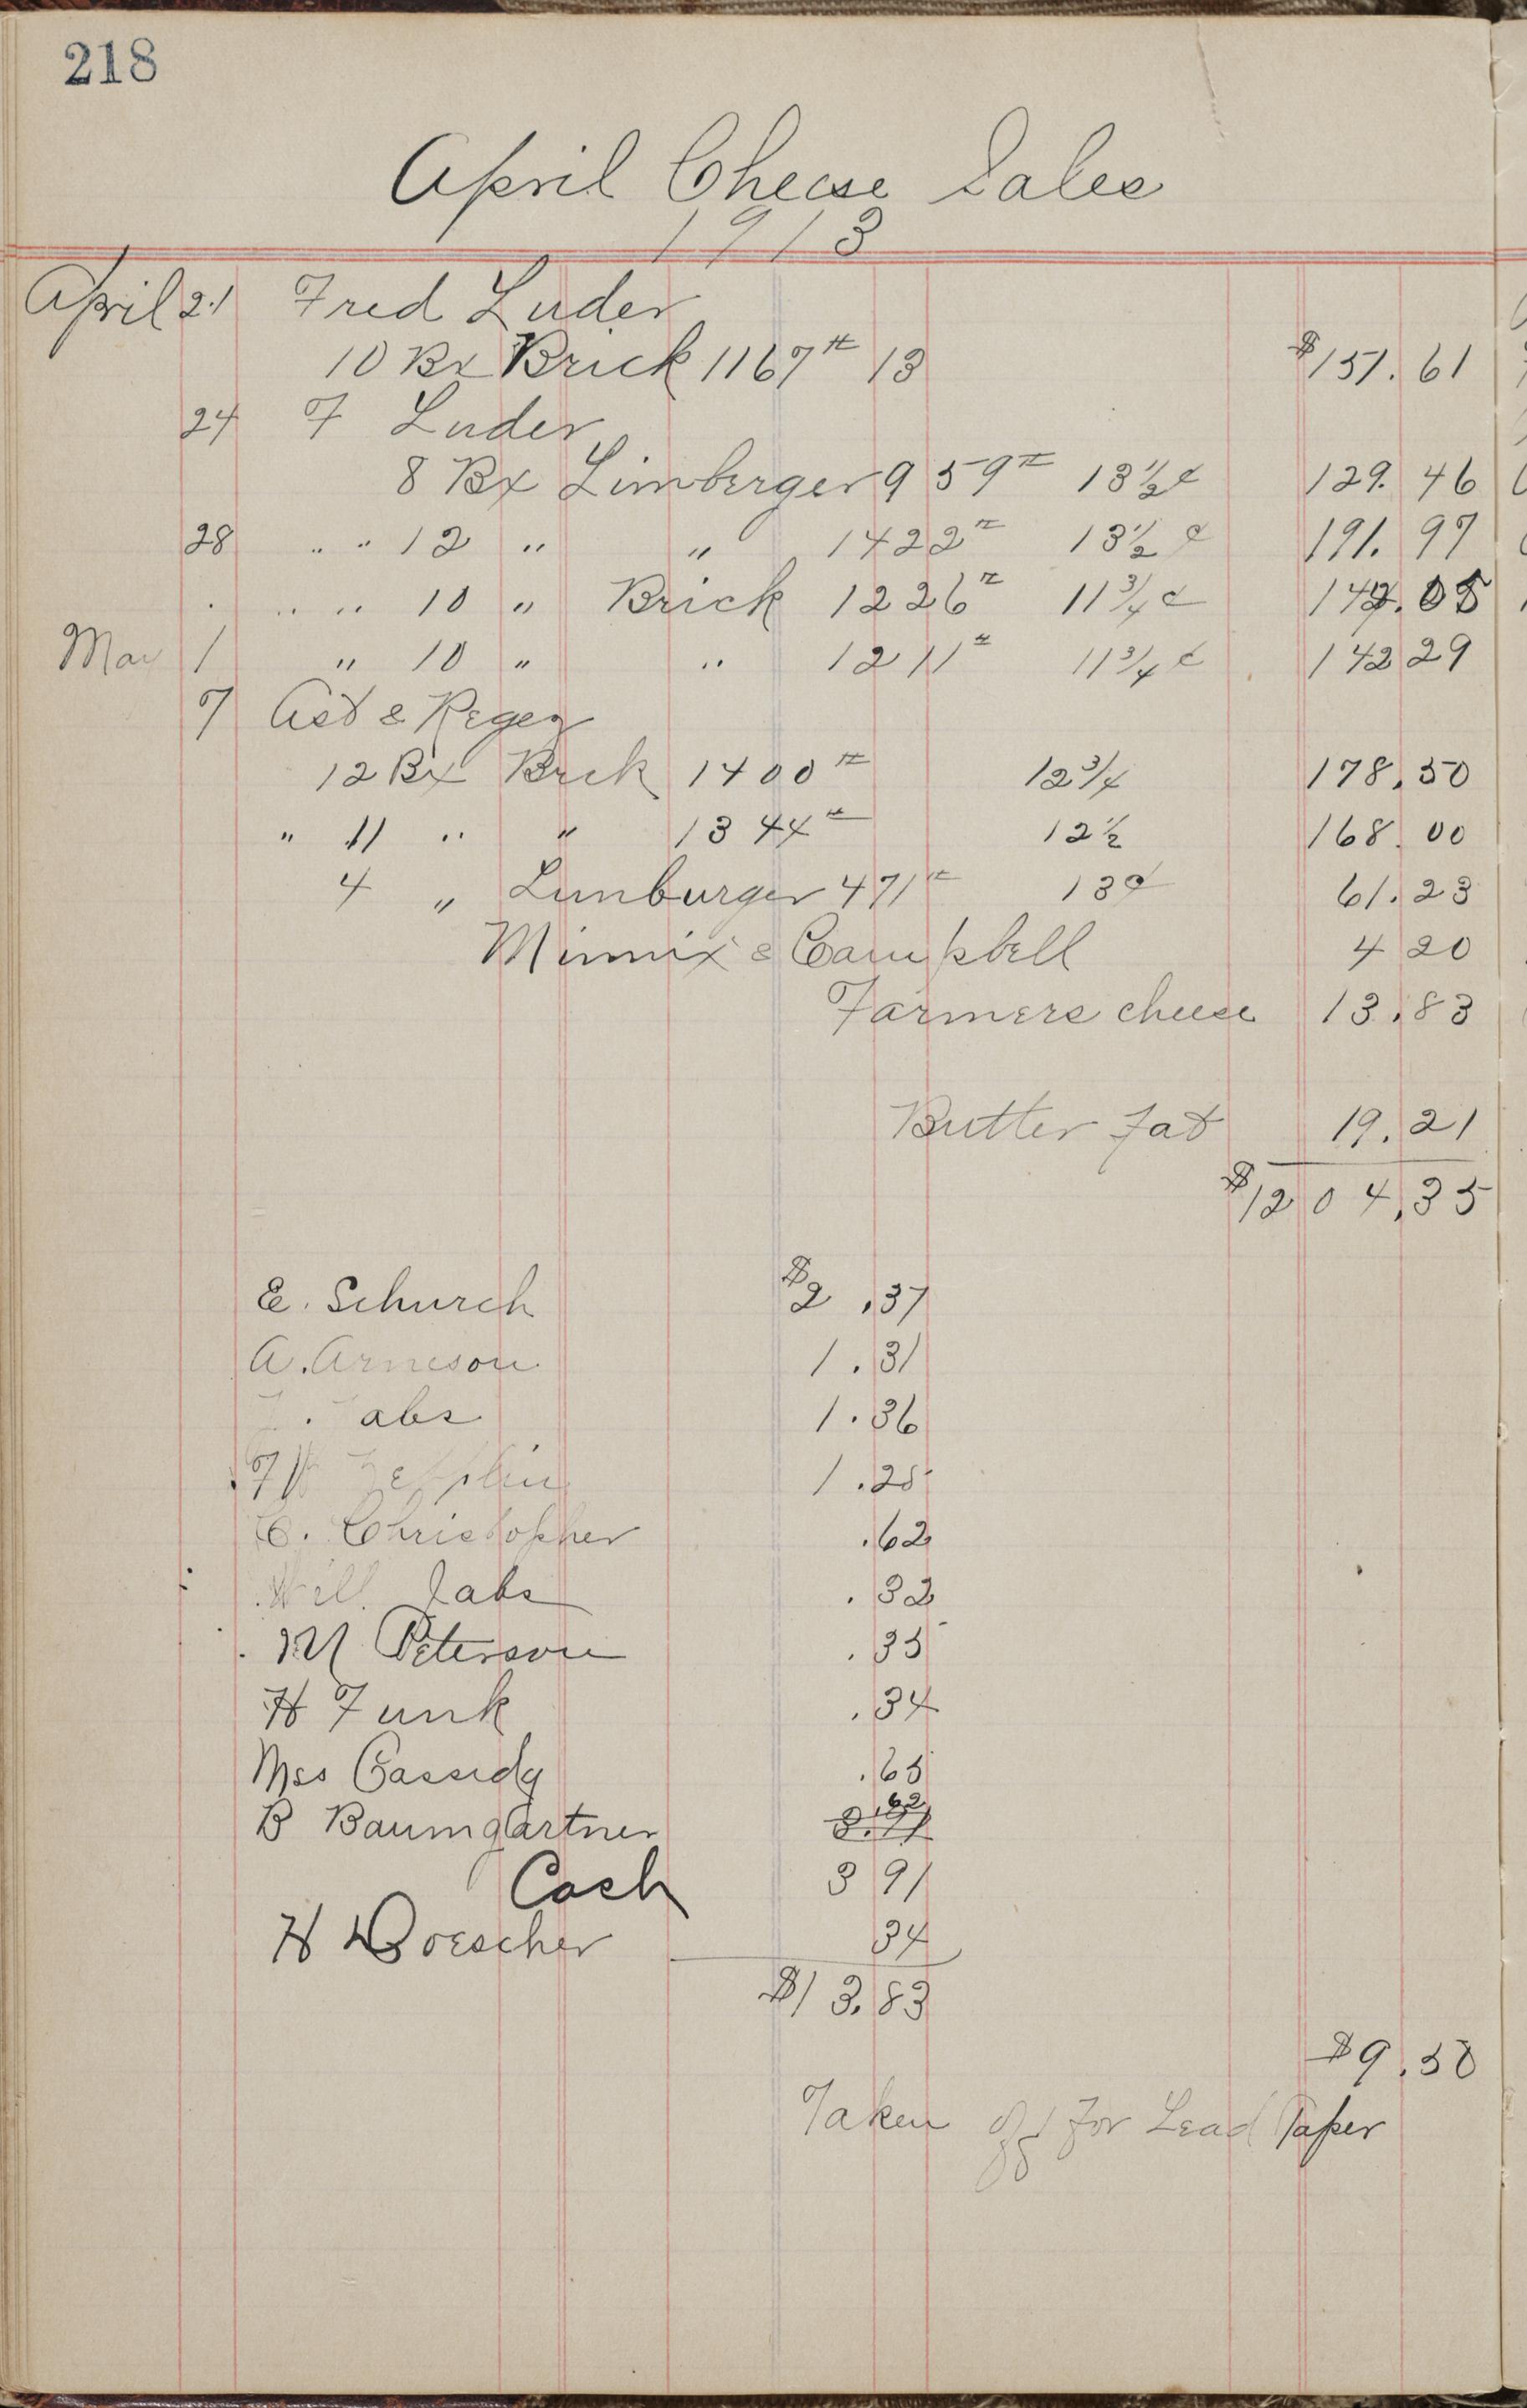 218
April Cheese Sales
1913
April 21 Fred Luder
10 Bx Brick 1167# 13 $151.61
24 F Luder
8 Bx Limberger 959# 13 1/2 ¢ 129.46
28 " " 12 " " 1422# 13 1/2 ¢ 191.97
" " 10 " Brick 1226# 11 3/4 ¢ 144.05
May 1 " 10 " " 1211# 11 3/4 ¢ 142 29
7 Ast & Regez
12 Bx Brick 1400# 12 3/4 178.50
" 11 " " 1344# 12 1/2 168.00
4 " Limburger 471# 13¢ 61.23
Minnix & Campbell 4 20
Farmers cheese 13.83
Butter Fat 19.21
$1204.35
E. Schurch $2.37
A. Arneson 1.31
abs 1.36
1.25
C. Christopher .62
Will Jabs .32
M Peterson .35
H Funk .34
Mrs Cassidy .65
B Baumgartner .62
Cash 3 91
H Doescher 34
$13.83
$9.50
Taken off for Lead Paper